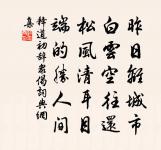 昨日離城市
白雲空往還
松風清耳目
端的勝人間
釋道初辭衆偈詞典網
集